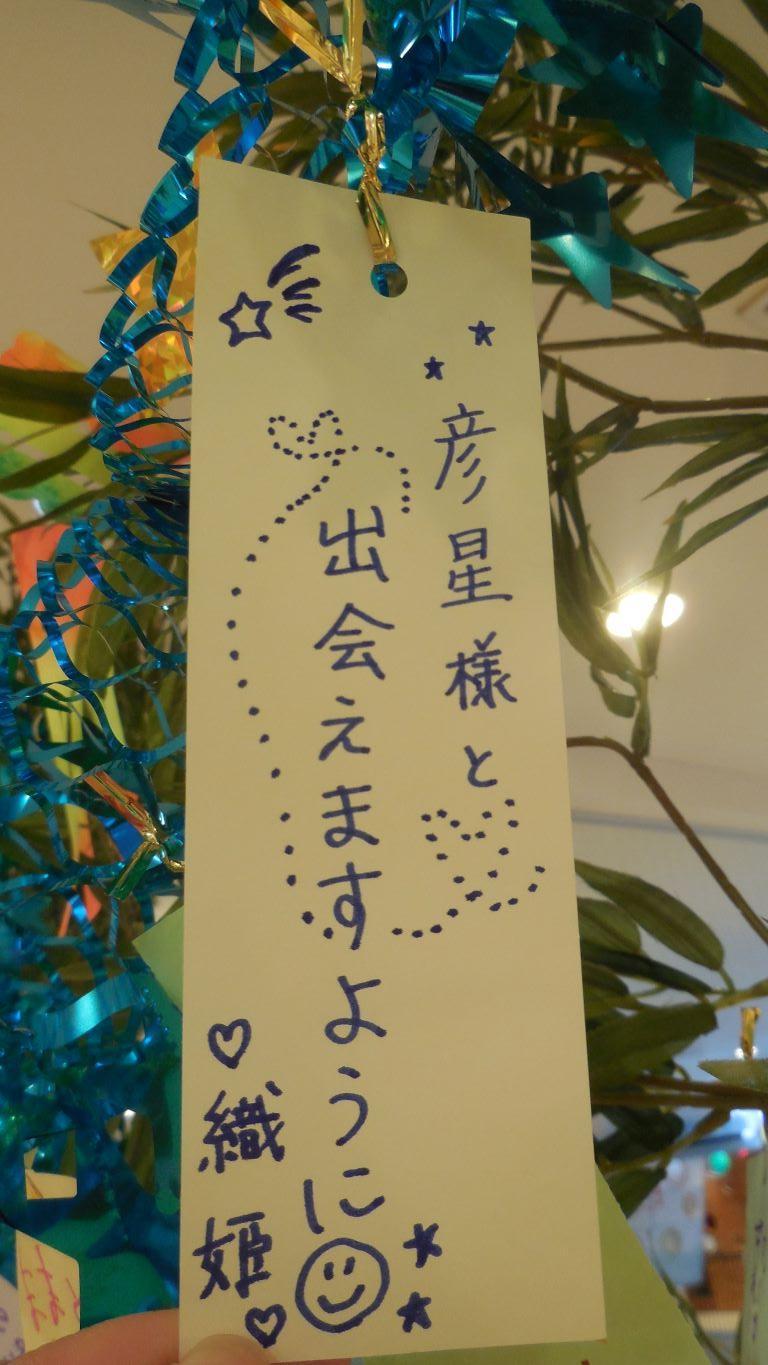 彦星様と
出会えますように
織姫